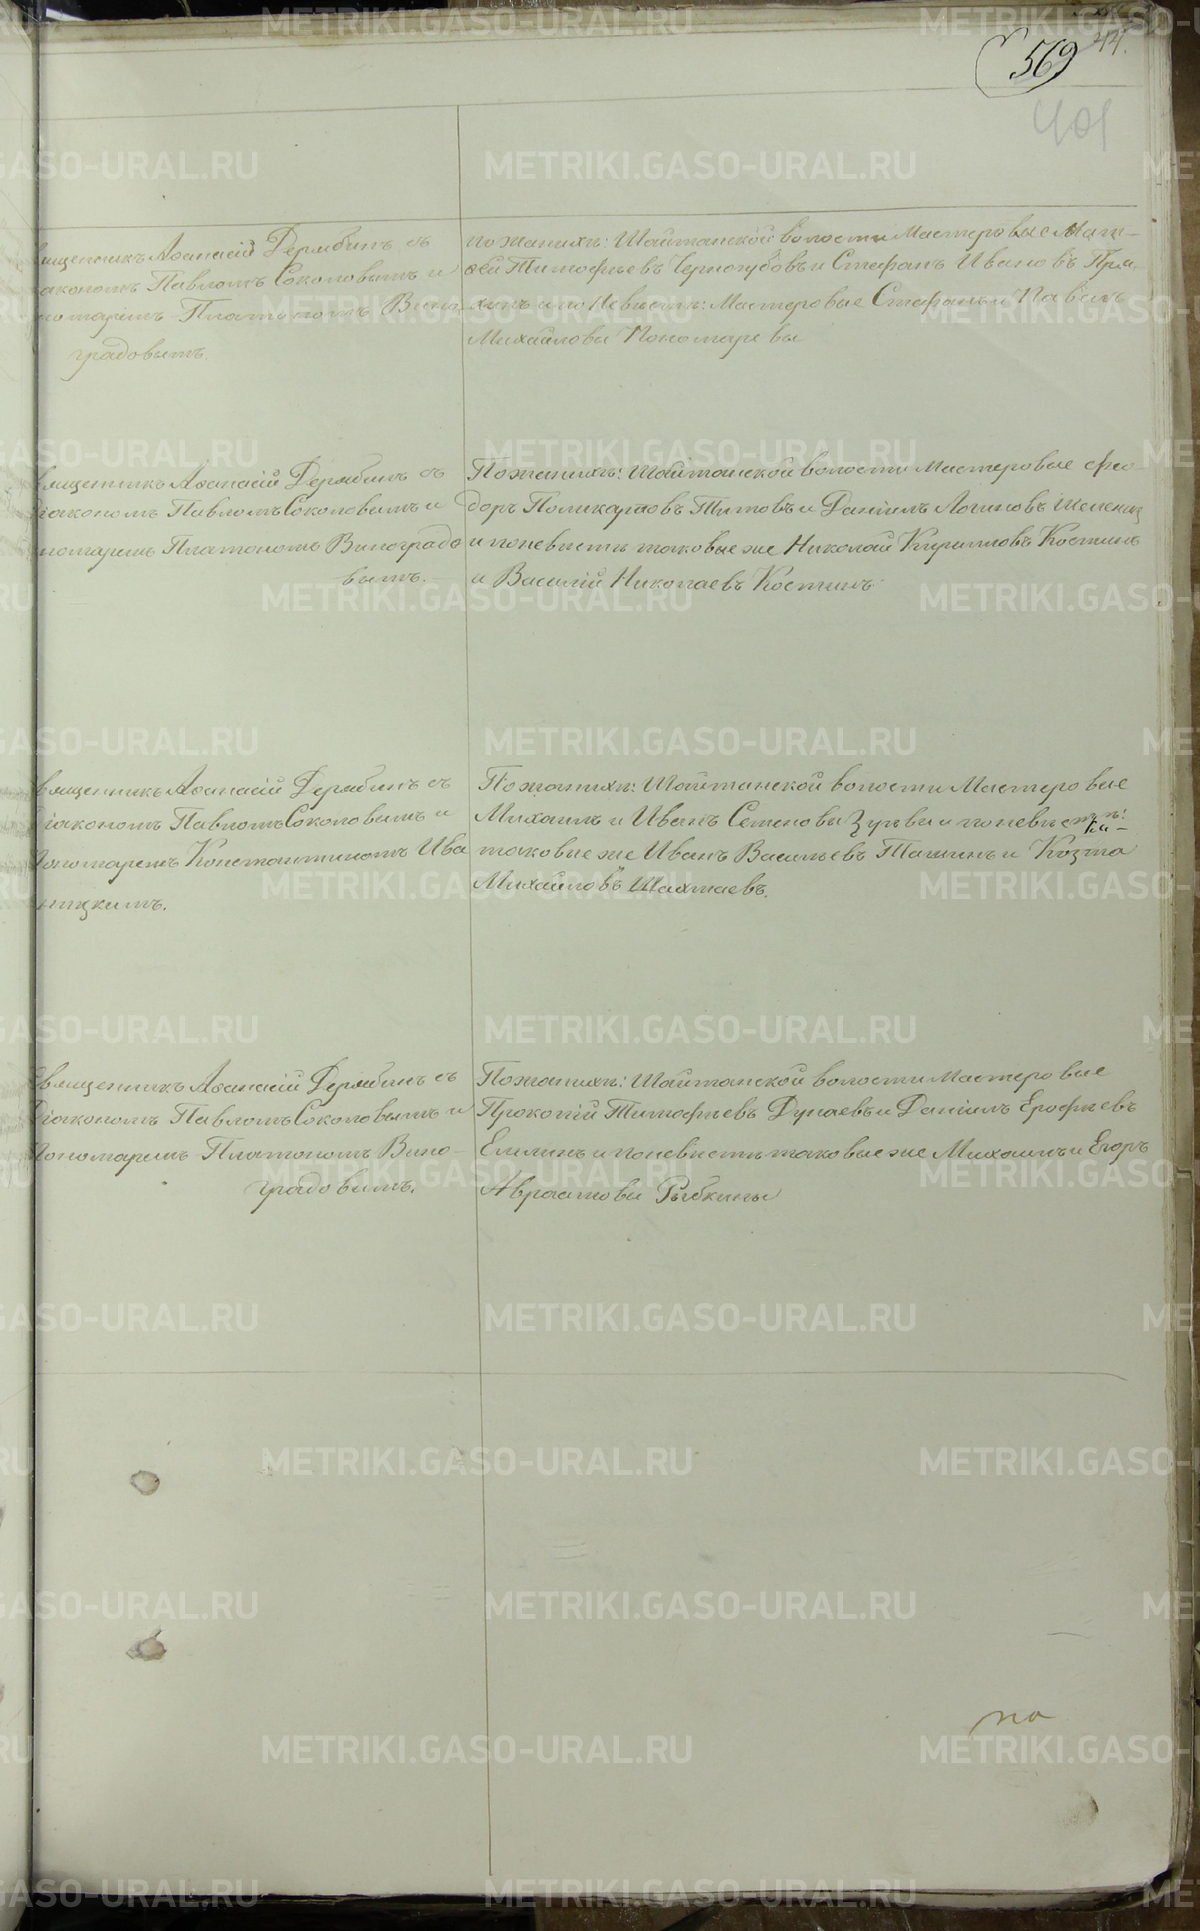 44.
569
401
священникъ Аѳанасій Дерябинъ съ
діакономъ Павломъ Соколовымъ и
пономаремъ Платономъ Вино-
градовымъ.
по женихѣ: Шайтанской волости Мастеровые Мат-
ѳей Тимофѣевъ Черногубовъ и Стефанъ Ивановъ Пря-
хинъ и по Невѣстѣ: Мастеровые Стефанъ и Павелъ
Михайловы Пономаревы
священникъ Аѳанасій Дерябинъ съ
діакономъ Павломъ Соколовымъ и
пономаремъ Платономъ Виноградо
вымъ.
По женихѣ: Шайтанской волости Мастеровые Ѳео-
доръ Поликарповъ Титовъ и Даніилъ Логиновъ
и по невѣстѣ таковые же Николай Кириловъ Костинъ
и Василій Николаевъ Костинъ
священникъ Аѳанасій Дерябинъ съ
діакономъ Павломъ Соколовымъ и
Пономаремъ Константиномъ Ива
ницкимъ.
По женихѣ: Шайтанской волости Мастеровые
Михаилъ и Иванъ Семеновы Зуевы и по невѣстѣ:
таковые же Иванъ Васильевъ Талинъ и Козма
Михайловъ Шахмаевъ.
Священникъ Аѳанасій Дерябинъ съ
Діакономъ Павломъ Соколовымъ и
Пономаремъ Платономъ Вино-
градовымъ.
По женихѣ: Шайтанской волости Мастеровые
Прокопій Тимофѣевъ Дунаевъ и Даніилъ Ерофѣевъ
Емлинъ и по невѣстѣ таковые же Михаилъ и Егоръ
Авраамовы Рыбкины
по
METRIKI.GASO-URAL.RU